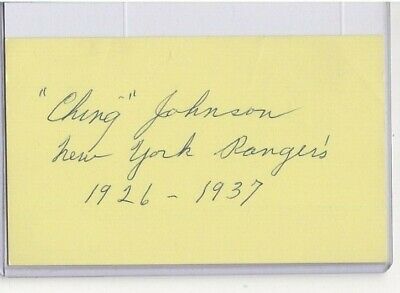 "Ching" Johnson
New York Ranger's
1926 - 1937